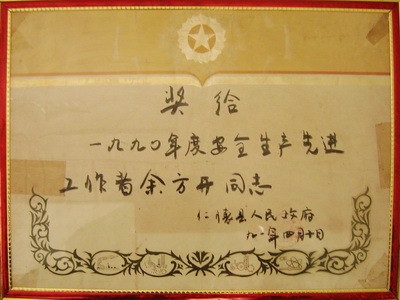 奖给
一九九〇年度安全生产先进
工作者余方开同志
仁德县人民政府
九一年四月十日